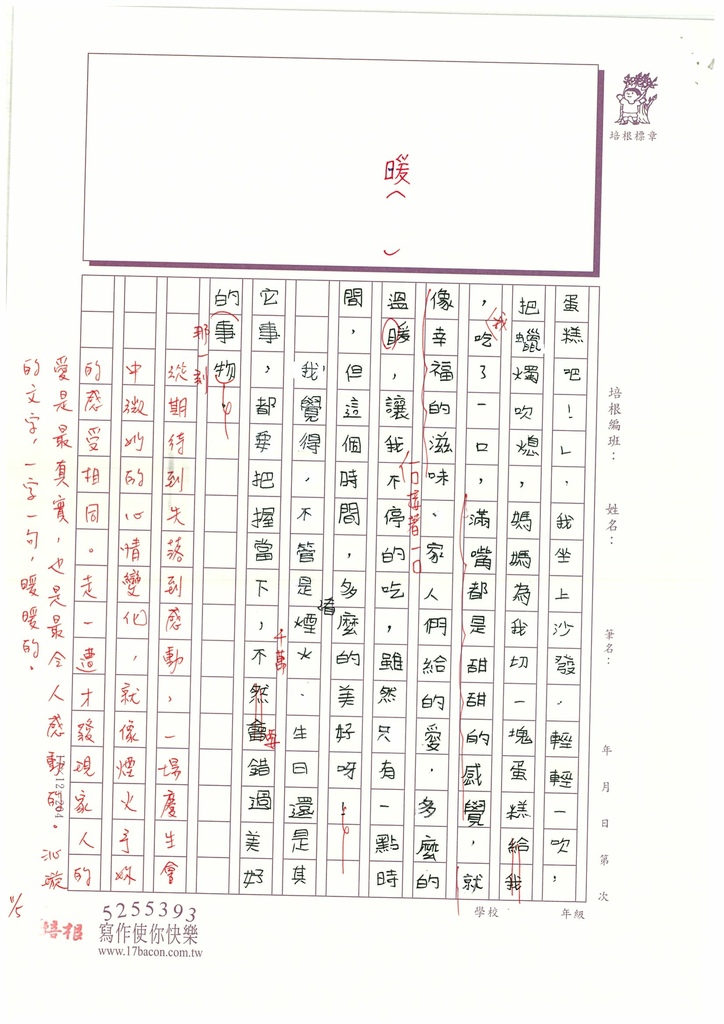 培根標章
暖（ ）
培根編班： 姓名： 筆名： 年 月 日 第 次
學校 年級
蛋糕吧！」，我坐上沙發，輕輕一吹，
把蠟燭吹熄，媽媽為我切一塊蛋糕給我
，吃了一口，滿嘴都是甜甜的感覺，就
我
像幸福的滋味、家人們給的愛，多麼的
溫暖，讓我不停的吃，雖然只有一點時
一口接著一口
間，但這個時間，多麼的美好呀！
我覺得，不管是煙火、生日還是其
它事，都要把握當下，不然會錯過美好
千萬
的事物。
那一刻
從期待到失落到感動，一場慶生會
中妳的心情變化，就像煙火予妳
的感受相同。走一遭才發現家人的
愛是最真實，也是最令人感動的。沁漩
的文字，一字一句，暖暖的。
11/5
5255393
培根 寫作使你快樂
www.17bacon.com.tw